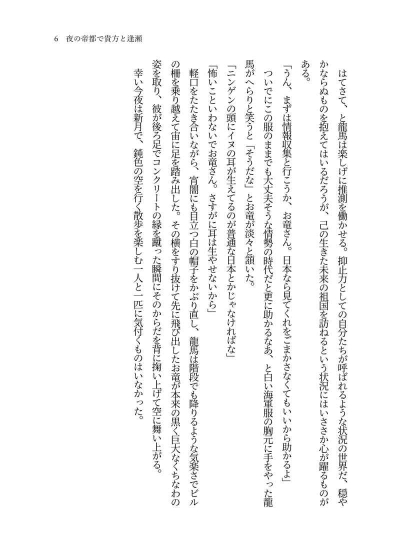 6　夜の帝都で貴方と逢瀬
　はてさて、と龍馬は楽しげに推測を働かせる。抑止力としての自分たちが呼ばれるような状況の世界だ、穏や
かならぬものを抱えてはいるだろうが、己の生きた未来の祖国を訪ねるという状況にはいささか心が躍るものが
ある。
「うん、まずは情報収集と行こうか、お竜さん。日本なら見てくれをごまかさなくてもいいから助かるよ」
　ついでにこの服のままでも大丈夫そうな情勢の時代だと更に助かるなあ、と白い海軍服の胸元に手をやった龍
馬がへらりと笑うと「そうだな」とお竜が淡々と頷いた。
「ニンゲンの頭にイヌの耳が生えてるのが普通な日本とかじゃなければな」
「怖いこといわないでお竜さん。さすがに耳は生やせないから」
　軽口をたたき合いながら、宵闇にも目立つ白の帽子をかぶり直し、龍馬は階段でも降りるような気楽さでビル
の柵を乗り越えて宙に足を踏み出した。その横をすり抜けて先に飛び出したお竜が本来の黒く巨大なくちなわの
姿を取り、彼が後ろ足でコンクリートの縁を蹴った瞬間にそのからだを背に掬い上げて空に舞い上がる。
　幸い今夜は新月で、鈍色の空を行く散歩を楽しむ一人と一匹に気付くものはいなかった。